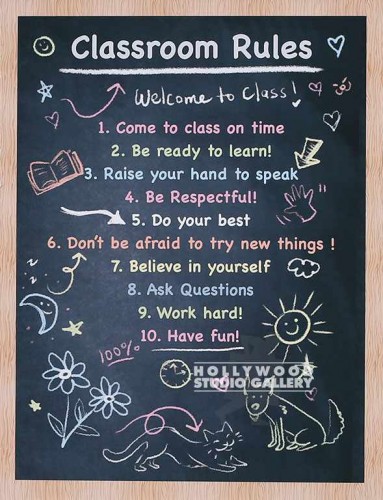 Classroom Rules
Welcome to Class!
1. Come to class on time
2. Be ready to learn!
3. Raise your hand to speak
4. Be Respectful!
5. Do your best
6. Don't be afraid to try new things !
7. Believe in yourself
8. Ask Questions
9. Work hard!
10. Have fun!
100%
HOLLYWOOD
STUDIO GALLERY